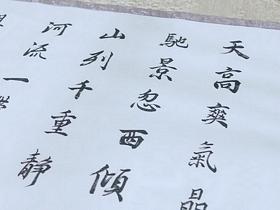 天高爽氣晶
馳景忽西傾
山列千重静
河流一帶